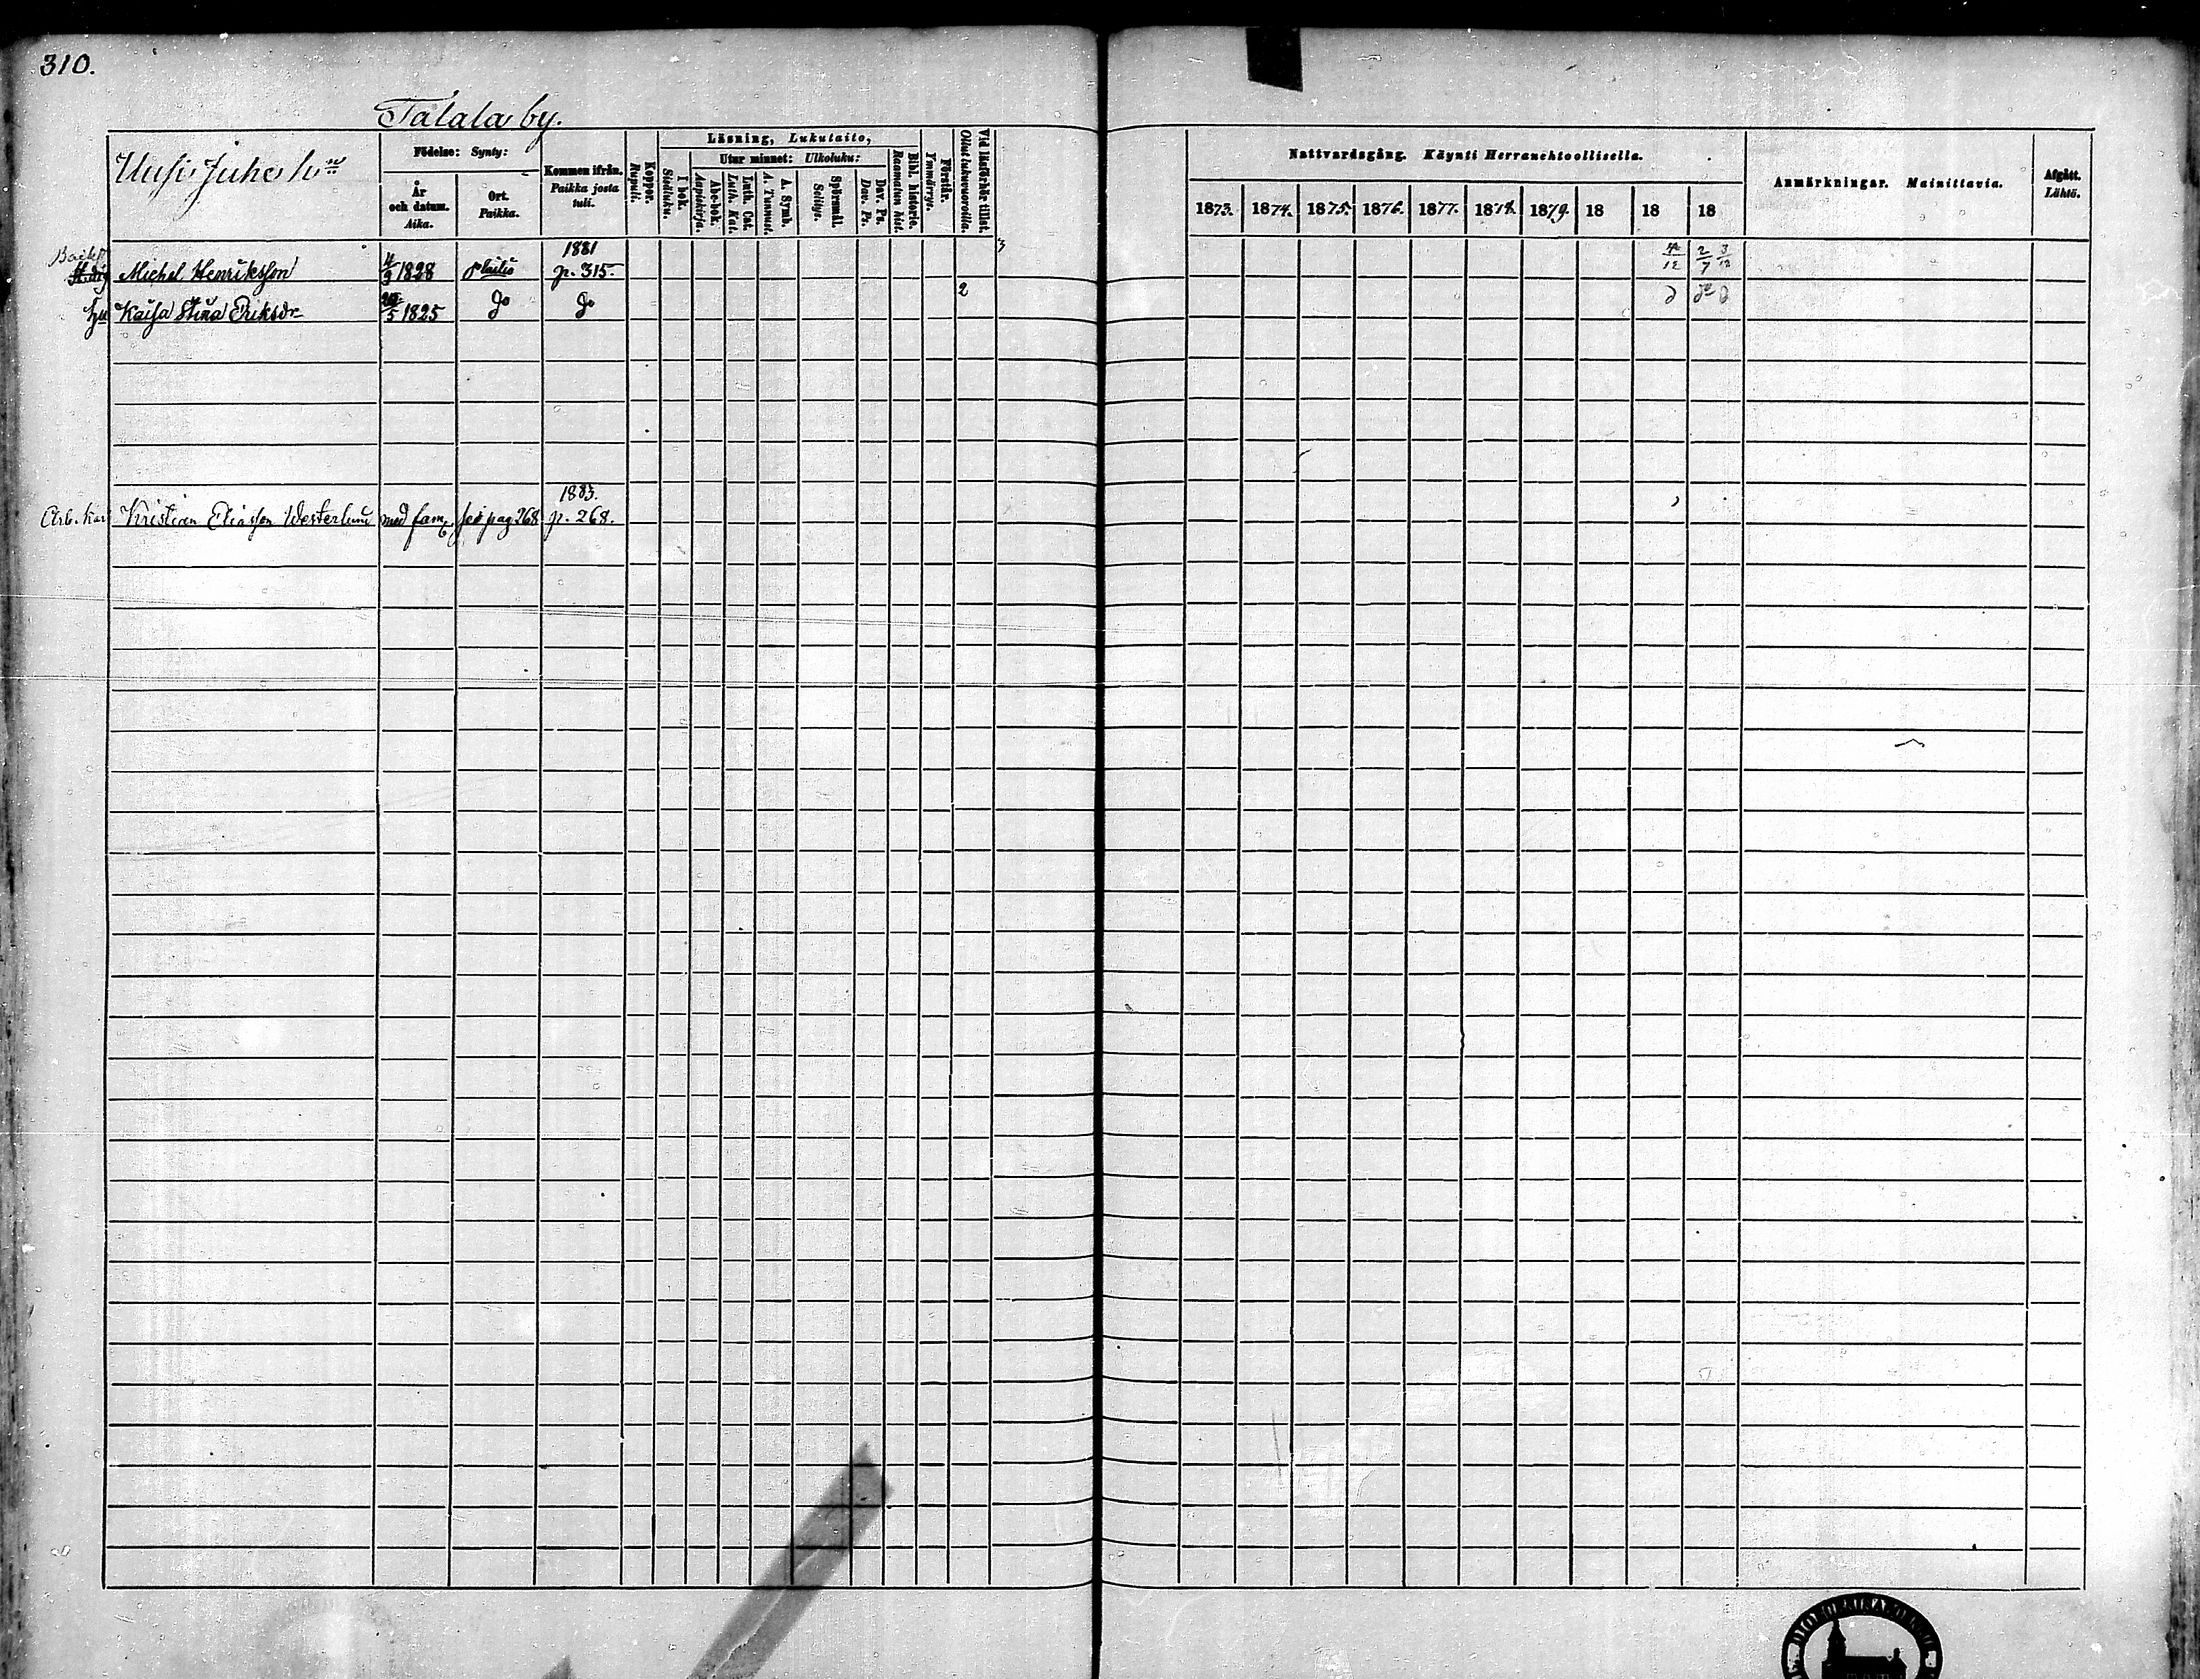 310.
Talala by.
Uusi Juho hn
Födelse: Synty:
År och datum. Aika.
Ort. Paikka.
Kommen ifrån. Paikka josta tuli.
Koppor. Rupuli.
Läsning, Lukutaito,
I bok. Sisäluku.
Utur minnet: Ulkoluku:
Abc-bok. Aapiskirja.
Luth. Cat. Luth. Kat.
A. Symb. A. Tunnust.
Spörsmål. Selitys.
Dav. Ps. Dav. Ps.
Bibl. historie. Raamatun hist.
Förstår. Ymmärrys.
Vid läsförhör tillst. Ollut lukuvuoroilla.
Nattvardsgång. Käynti Herranehtoollisella.
1873. 1874. 1875. 1876. 1877. 1878. 1879. 18 18 18
Anmärkningar. Mainittavia.
Afgått. Lähtö.
1881
Michel Henriksson 4/9 1828 p. 315. 3 2/7 3/12
hu Kaisa Stina Eriksdr 1825 do do 2
1883.
Arb. Karl Kristian Eliasson Westerlund med fam. se pag 268 p. 268.